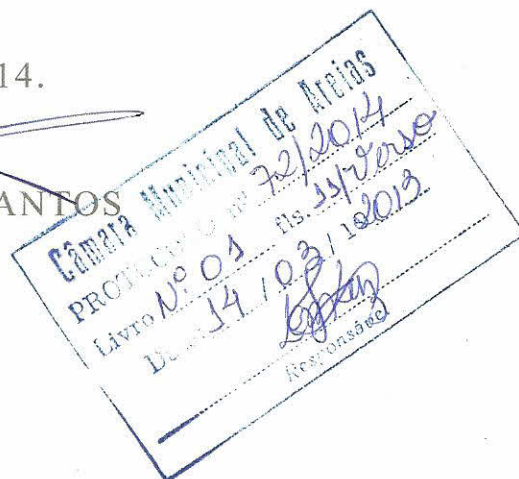 14.
ANTOS
Câmara Municipal de Areias
PROTOCOLO nº 72/2014
Livro Nº 01 fls. 11/Verso
De 14 / 03 / 2013
Responsável